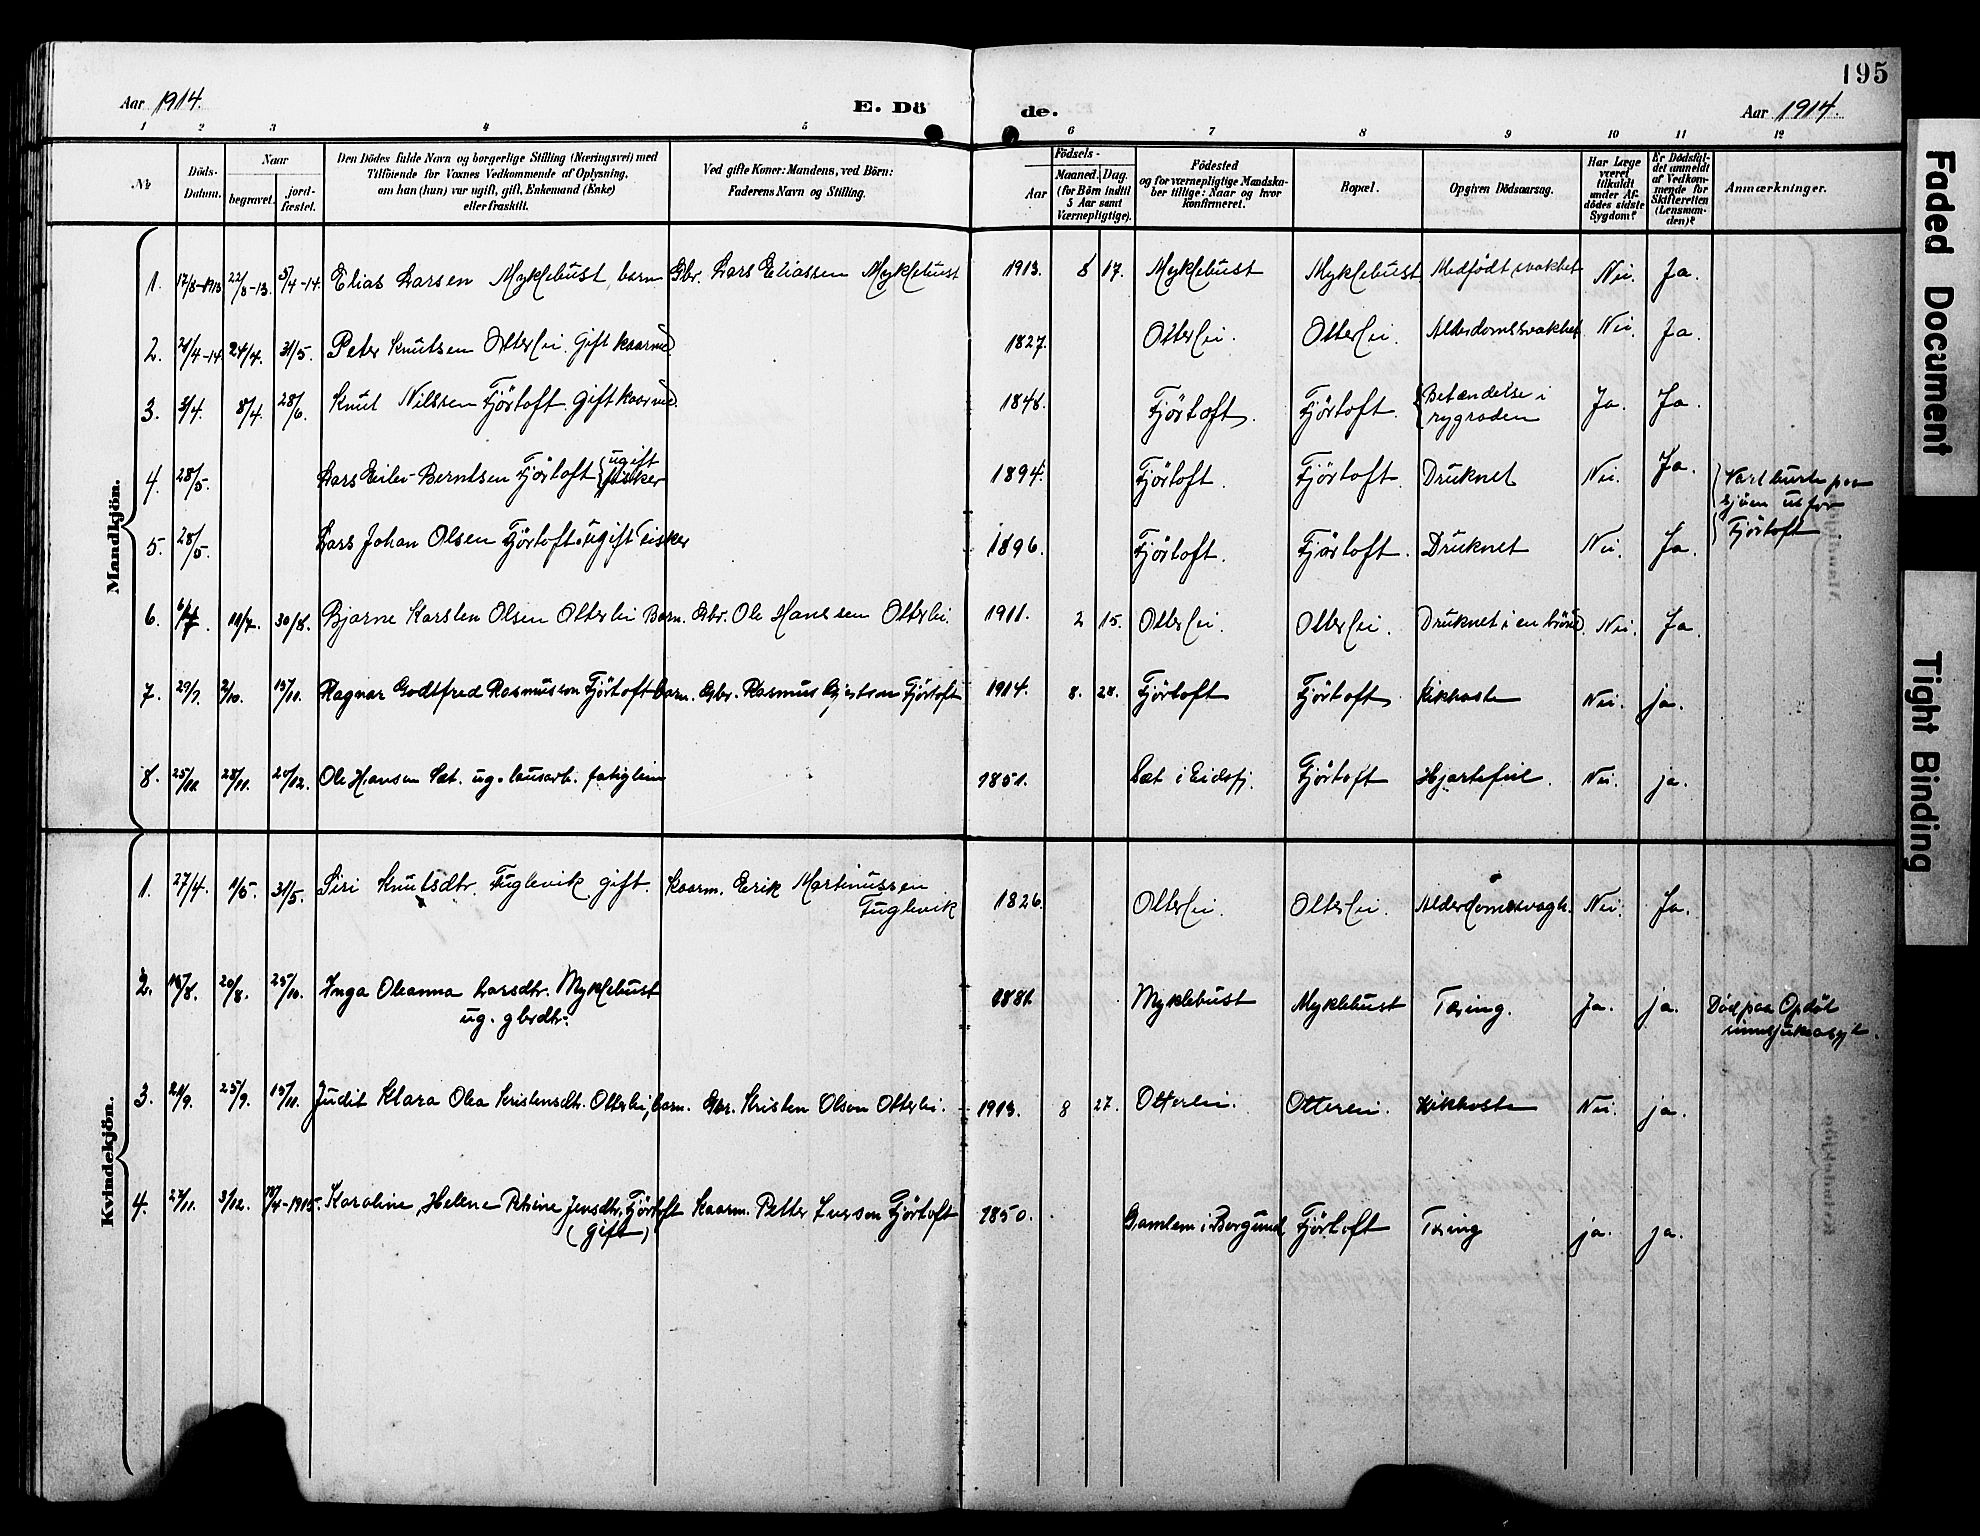 195
Aar 1914.
E. Döde.
Aar 1914.
1 2 3 4 5 6 7 8 9 10 11 12
No
Döds-Datum.
Naar
begravet.
jord-fæstet.
Den Dödes fulde Navn og borgerlige Stilling (Næringsvei) med
Tilföiende for Voxnes Vedkommende af Oplysning,
om han (hun) var ugift, gift, Enkemand (Enke)
eller fraskilt.
Ved gifte Koner: Mandens, ved Börn:
Faderens Navn og Stilling.
Födsels-
Aar
Maaned. Dag.
(for Börn indtil
5 Aar samt
Værnepligtige).
Födested
og for værnepligtige Mandska-
ber tillige: Naar og hvor
konfirmeret.
Bopæl.
Opgiven Dödsaarsag.
Har Læge
været
tilkaldt
under Af-
dödes sidste
Sygdom?
Er Dödsfal-
det anmeldt
af Vedkom-
mende for
Skifteretten
(Lensman-
den)?
Anmærkninger.
Mandkjön.
1. 17/8-1913 22/8-13. 5/4-14. Elias Larsen Myklebust, barn Gbr. Lars Eliassen Myklebust 1913. 8 17. Myklebust Myklebust Medfödt svakhet Nei. Ja.
2. 21/4-14 24/4. 31/5. Peter Knutsen Otterlei. Gift kaarmd 1827. Otterlei. Otterlei. Alderdomssvakhet Nei. Ja.
3. 3/4. 8/4. 28/6. Knut Nilssen Fjörtoft. Gift kaarmd. 1848. Fjörtoft. Fjörtoft. Betændelse i
rygraden Ja. Ja.
4. 28/5. Lars Eilev Berntsen Fjörtoft ugift
fisker 1894. Fjörtoft. Fjörtoft. Druknet Nei. Ja. Vart burte paa
sjöen utfor
Fjörtoft
5. 28/5. Lars Johan Olsen Fjörtoft. Ugift Fisker 1896. Fjörtoft. Fjörtoft. Druknet Nei. Ja.
6. 6/7. 11/7. 30/8. Bjarne Karsten Olsen Otterlei Barn. Gbr. Ole Hanssen Otterlei. 1911. 2 15. Otterlei. Otterlei. Druknet i en brönd. Nei. Ja.
7. 2/10. 15/11. Ragnar Godtfred Rasmusson Fjörtoft barn. Gbr. Rasmus Fjörtoft 1914. 8. 28. Fjörtoft Fjörtoft Kikhoste Nei. ja.
8. 25/11. 28/11. 20/12. Ole Hansen Sæt. ug. lausarb. fatiglem 1851. Sæt i Eidsfj. Fjörtoft Hjartefeil. Nei. ja.
Kvindekjön.
1. 27/4. 1/5. 31/5. Siri Knutsdtr. Fuglevik gift. Kaarm. Erik Martinussen
Fuglevik 1826. Otterlei. Otterlei. Alderdomssvagh. Nei. Ja.
2. 20/8. 25/10. Inga Oleanna Larsdtr. Myklebust
ug. gbrdtr. 1881. Myklebust Myklebust Tæring. Ja. ja. Död paa Opdöl
sinnsjukeasyl.
3. 21/9. 25/9. 15/11. Judit Klara Olea Kristensdtr. Otterlei, barn. Gbr. Kristen Olson Otterlei. 1913. 8 27. Otterlei. Otterlei. Kikhoste Nei. ja.
4. 27/11. 3/12. Karoline Helene Petrine Jensdtr. Fjörtoft
(gift) Kaarm. Petter Iverson Fjörtoft 1850. Gamlem i Borgund Fjörtoft Tæring ja. ja.
Faded Document
Tight Binding